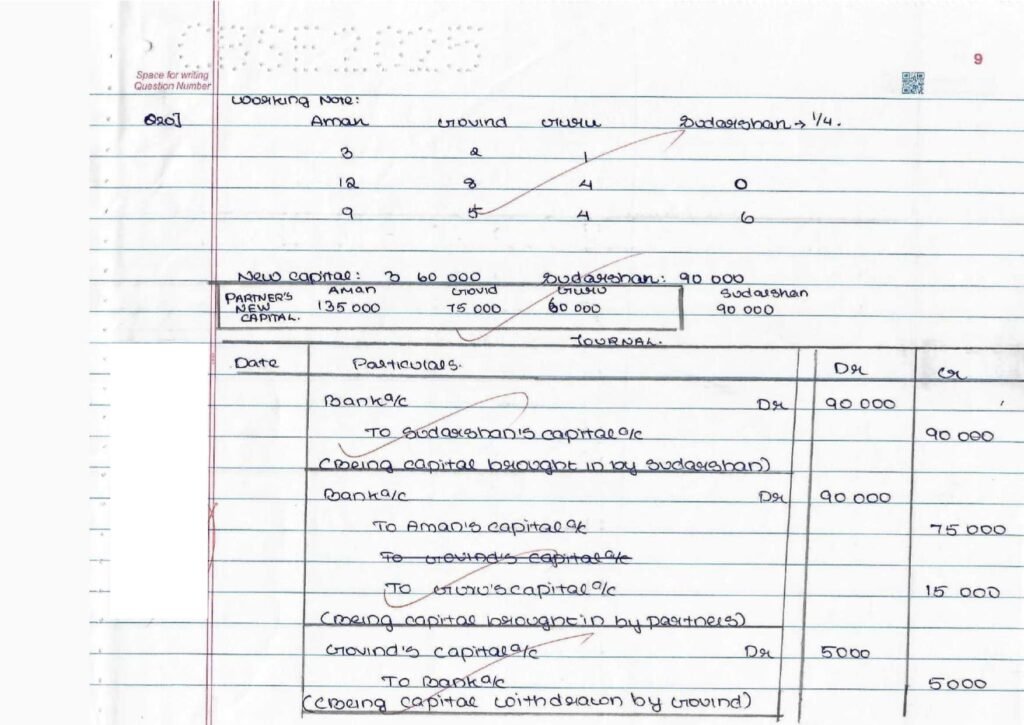 CBSE2025
9
Space for writing
Question Number
Working Note:
Q20] Aman Govind Guru Sudarshan → 1/4.
3 2 1
12 8 4 0
9 5 4 6
New capital: 3 60 000 Sudarshan: 90 000
PARTNER'S NEW CAPITAL. Aman Govid Guru Sudarshan
135 000 75 000 60 000 90 000
JOURNAL.
Date Particulars. Dr Cr
Bank a/c Dr 90 000
To Sudarshan's capital a/c 90 000
(Being capital brought in by Sudarshan)
Bank a/c Dr 90 000
To Aman's capital a/c 75 000
To Govind's capital a/c
To Guru's capital a/c 15 000
(Being capital brought in by partners)
Govind's capital a/c Dr 5000
To Bank a/c 5000
(Being capital withdrawn by Govind)